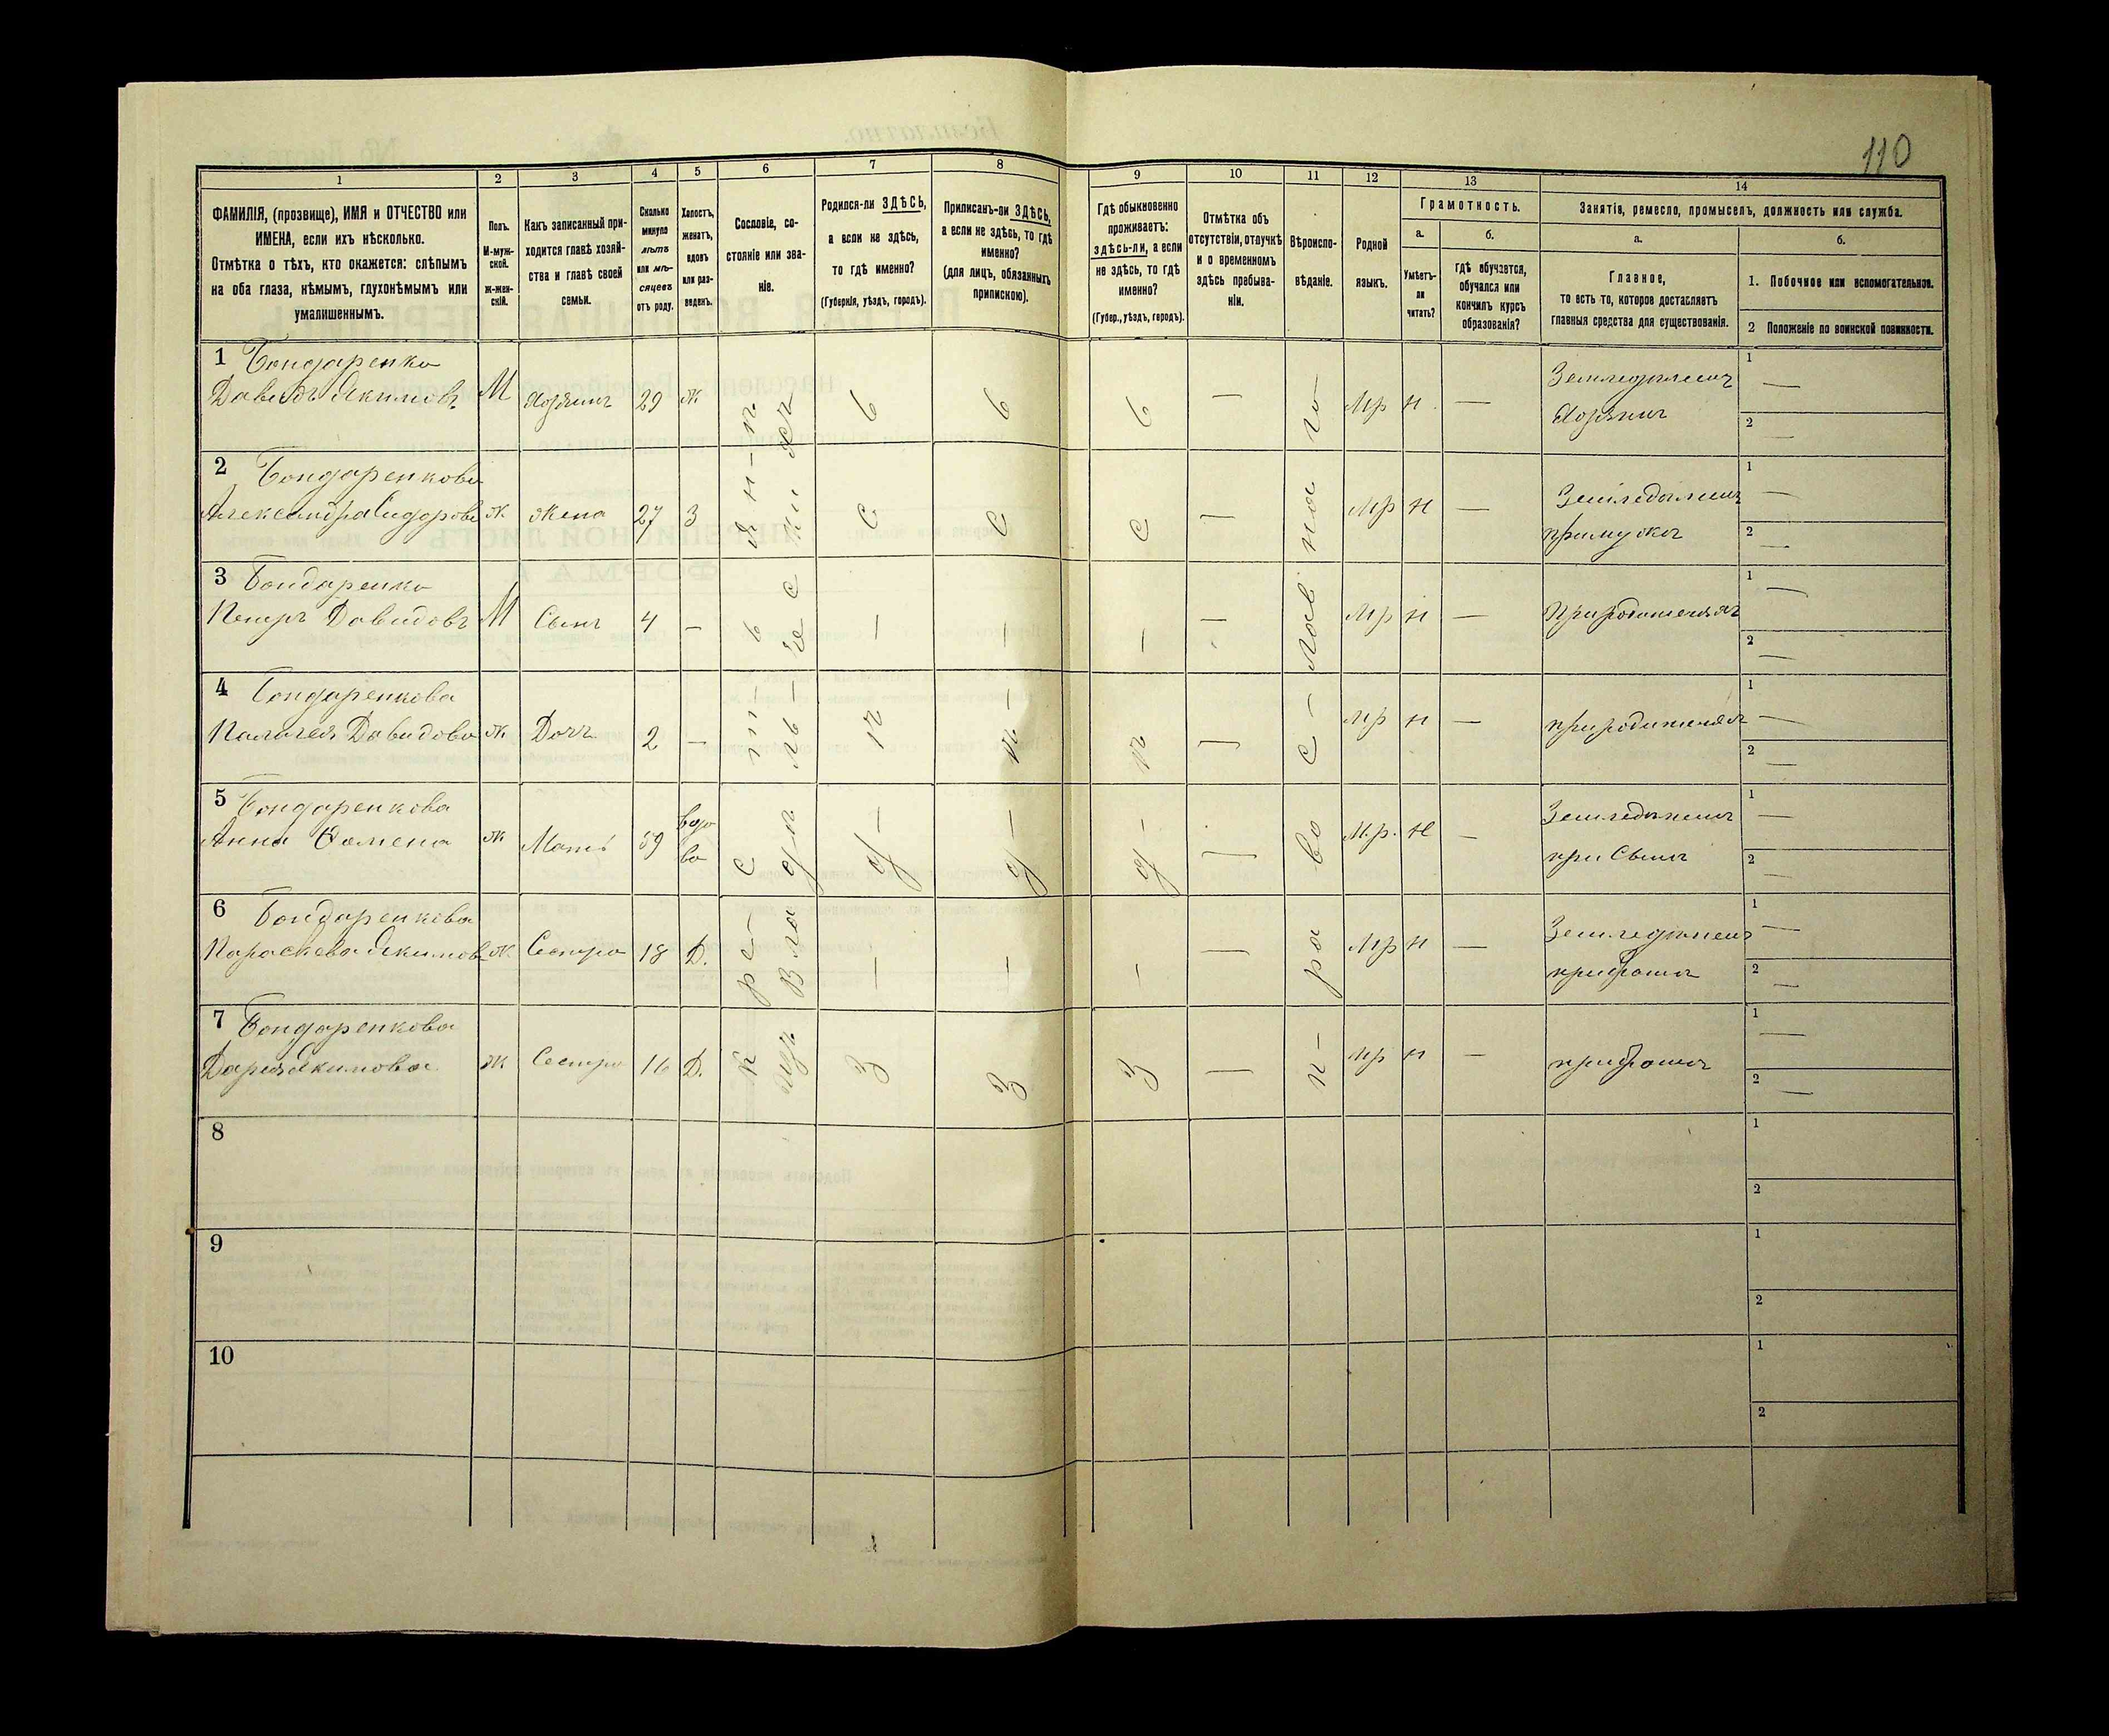 110
1
2
3
4
5
6
7
8
9
10
11
12
13
14
ФАМИЛІЯ, (прозвище), ИМЯ и ОТЧЕСТВО или
ИМЕНА, если ихъ нѣсколько.
Отмѣтка о тѣхъ, кто окажется: слѣпымъ
на оба глаза, нѣмымъ, глухонѣмымъ или
умалишеннымъ.
Полъ.
М-муж-
ской.
ж-жен-
скій.
Какъ записанный при-
ходится главѣ хозяй-
ства и главѣ своей
семьи.
Сколько
минуло
лѣтъ
или мѣ-
сяцевъ
отъ роду.
Холостъ,
женатъ,
вдовъ
или раз-
веденъ.
Сословіе, со-
стояніе или зва-
ніе.
Родился-ли ЗДѢСЬ,
а если не здѣсь,
то гдѣ именно?
(Губернія, уѣздъ, городъ).
Приписанъ-ли ЗДѢСЬ,
а если не здѣсь, то гдѣ
именно?
(для лицъ, обязанныхъ
припискою).
Гдѣ обыкновенно
проживаетъ:
здѣсь-ли, а если
не здѣсь, то гдѣ
именно?
(Губер., уѣздъ, городъ).
Отмѣтка объ
отсутствіи, отлучкѣ
и о временномъ
здѣсь пребыва-
ніи.
Вѣроиспо-
вѣданіе.
Родной
языкъ.
Грамотность.
а.
Умѣетъ-
ли
читать?
б.
гдѣ обучается,
обучался или
кончилъ курсъ
образованія?
Занятіе, ремесло, промыселъ, должность или служба.
а.
Главное,
то есть то, которое доставляетъ
главныя средства для существованія.
б.
1. Побочное или вспомогательное.
2 Положеніе по воинской повинности.
1 Бондаренко
Давидъ Якимовъ М Хозяинъ 29 ж — Мр н — Земледѣлецъ 1 —
Хозяинъ 2 —
2 Бондаренкова
Александра Сидорова ж Жена 27 З — Мр н — Земледѣлец 1 —
примужѣ 2 —
3 Бондаренко
Петръ Давидовъ М Сынъ 4 — — Мр н — Природителяхъ 1 —
2 —
4 Бондаренкова
Палагея Давидова ж Дочь 2 — — Мр н — природителях 1 —
2 —
5 Бондаренкова
Анна ж Мать 59 вдо
ва — М.р. н — Земледѣлец 1 —
при Сынѣ 2 —
6 Бондаренкова
Параскева Якимов ж Сестра 18 Д. — Мр н — Земледѣлец 1 —
прибратѣ 2 —
7 Бондаренкова
Дарья Якимова ж Сестра 16 Д. — Мр н — прибратѣ 1 —
2 —
Крестьянинъ
здѣсь
здѣсь
здѣсь
православнаго
8
1
2
9
1
2
10
1
2